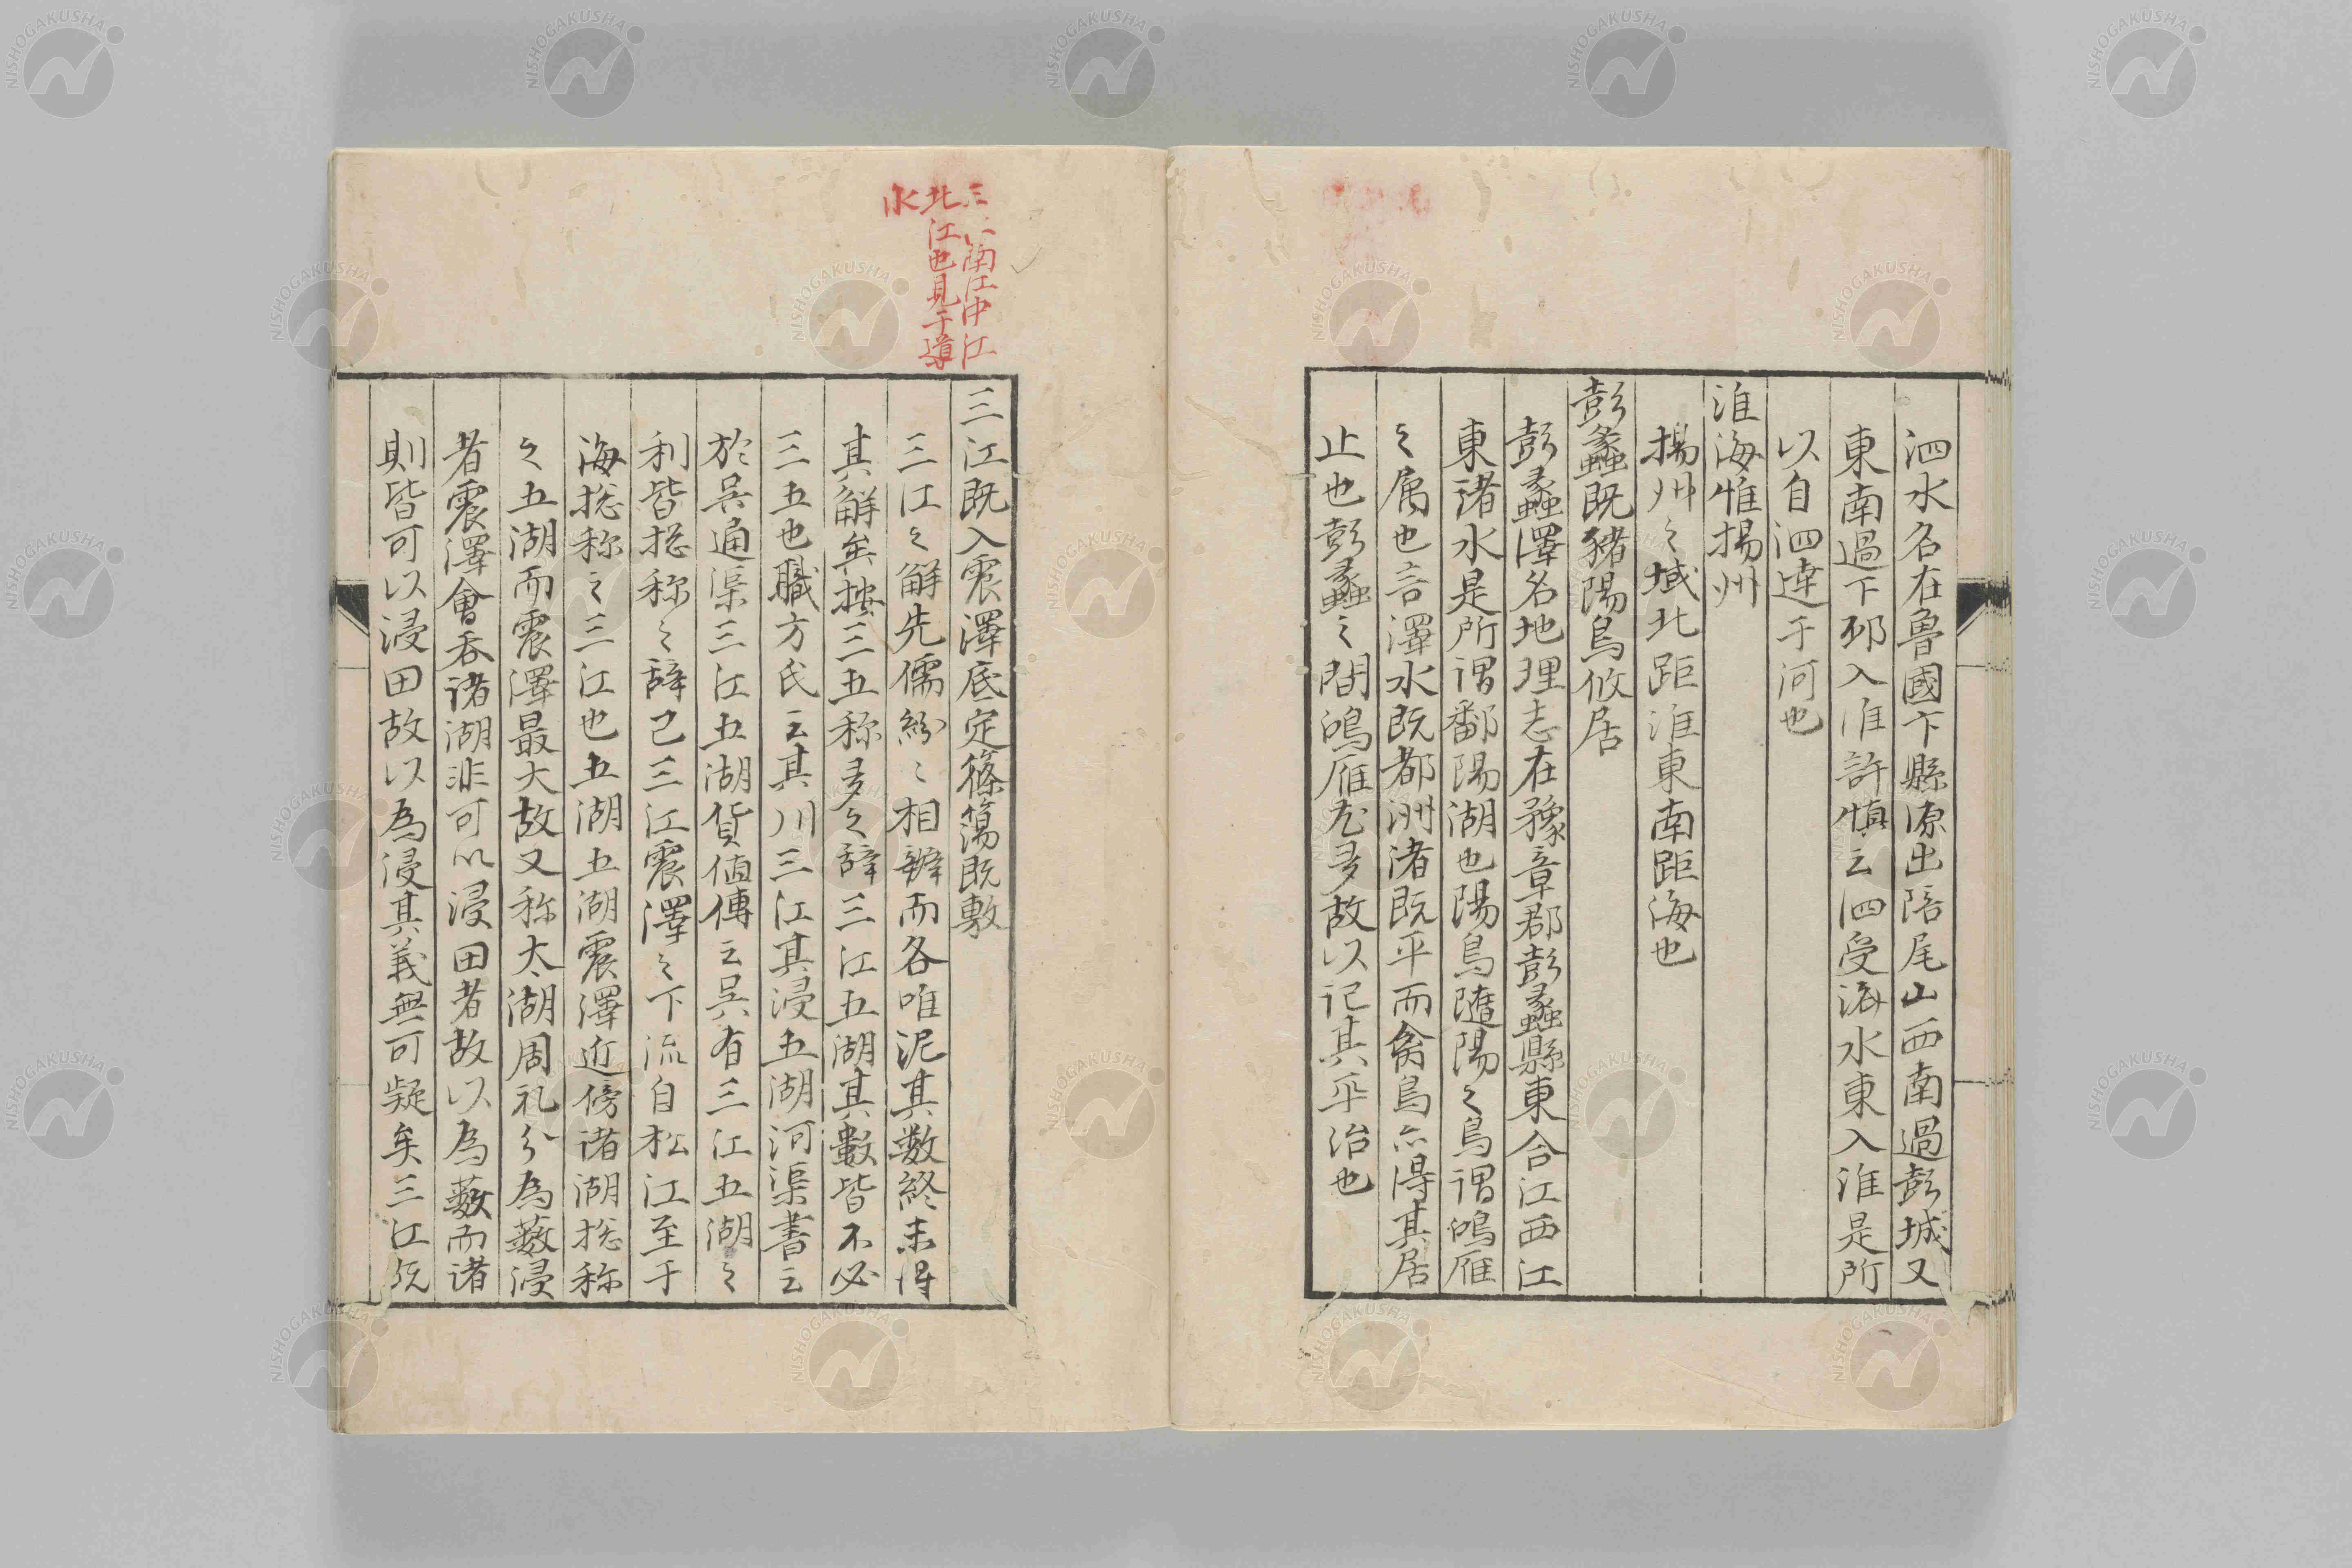 泗水名在魯國卞縣源出陪尾山西南過彭城又
東南過下邳入淮許慎云泗受泲水東入淮是所
以自泗達于河也
淮海惟揚州
揚州之域北距淮東南距海也
彭蠡既豬陽鳥攸居
彭蠡澤名地理志在豫章郡彭蠡縣東合江西江
東諸水是所謂鄱陽湖也陽鳥隨陽之鳥謂鴻雁
之属也言澤水既都洲渚既平而禽鳥亦得其居
止也彭蠡之間鴻雁尤多故以記其平治也
三江南江中江
北江也見于導
水
三江既入震澤底定篠簜既敷
三江之解先儒紛々相辨而各唯泥其数終未得
其解矣按三五称多之辞三江五湖其數皆不必
三五也職方氏云其川三江其浸五湖河渠書云
於呉通渠三江五湖貨値傳云呉有三江五湖之
利皆捴称之辞已三江震澤之下流自松江至于
海捴称之三江也五湖五湖震澤近傍諸湖捴称
之五湖而震澤最大故又称大湖周礼分為藪浸
者震澤會呑諸湖非可以浸田者故以為藪而諸
則皆可以浸田故以為浸其義無可疑矣三江既
NISHOGAKUSHA